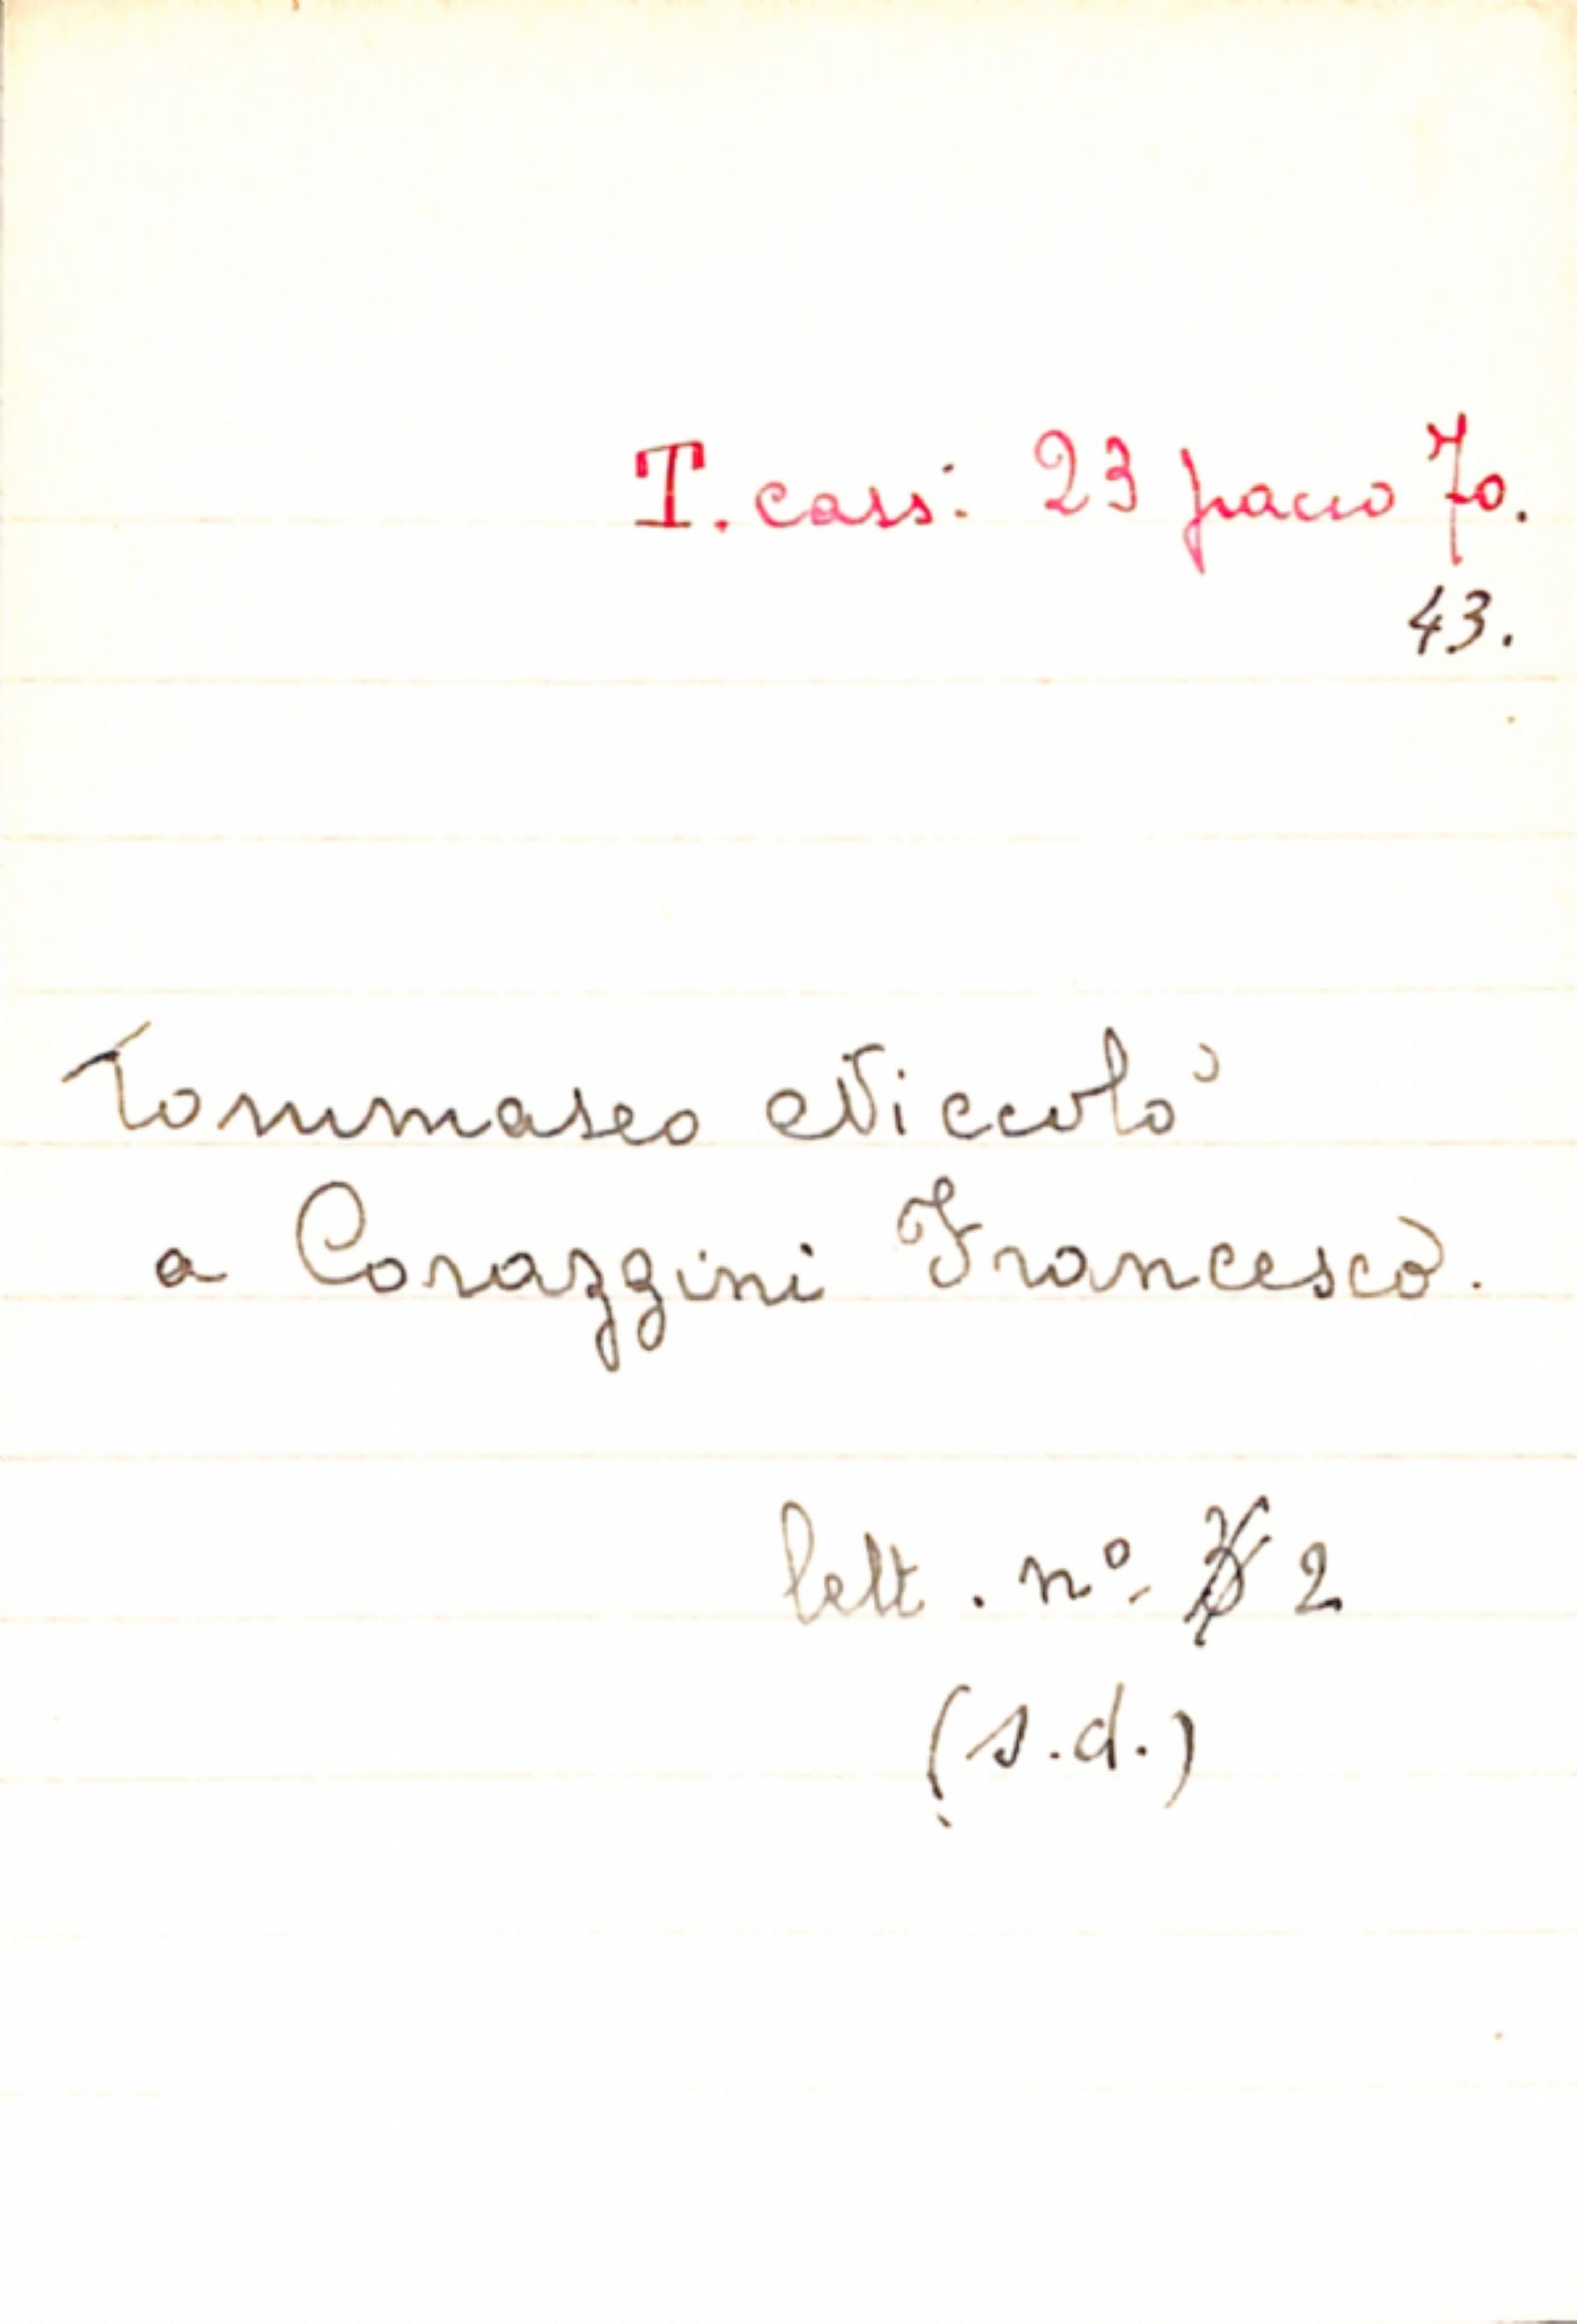 T. cass: 23 pacco 70.
43.
Tommaseo Niccolò
a Corazzini Francesco.
lett. nº 2
(s.d.)